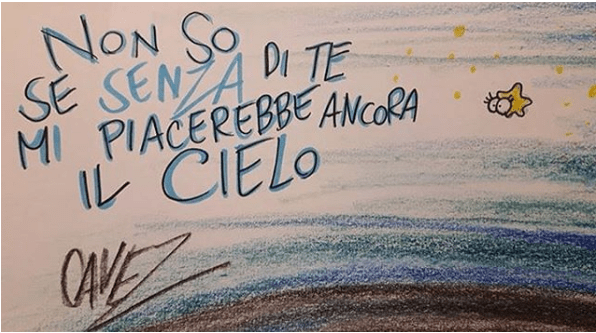 NON SO
SE SENZA DI TE
MI PIACEREBBE ANCORA
IL CIELO
CAVEZ